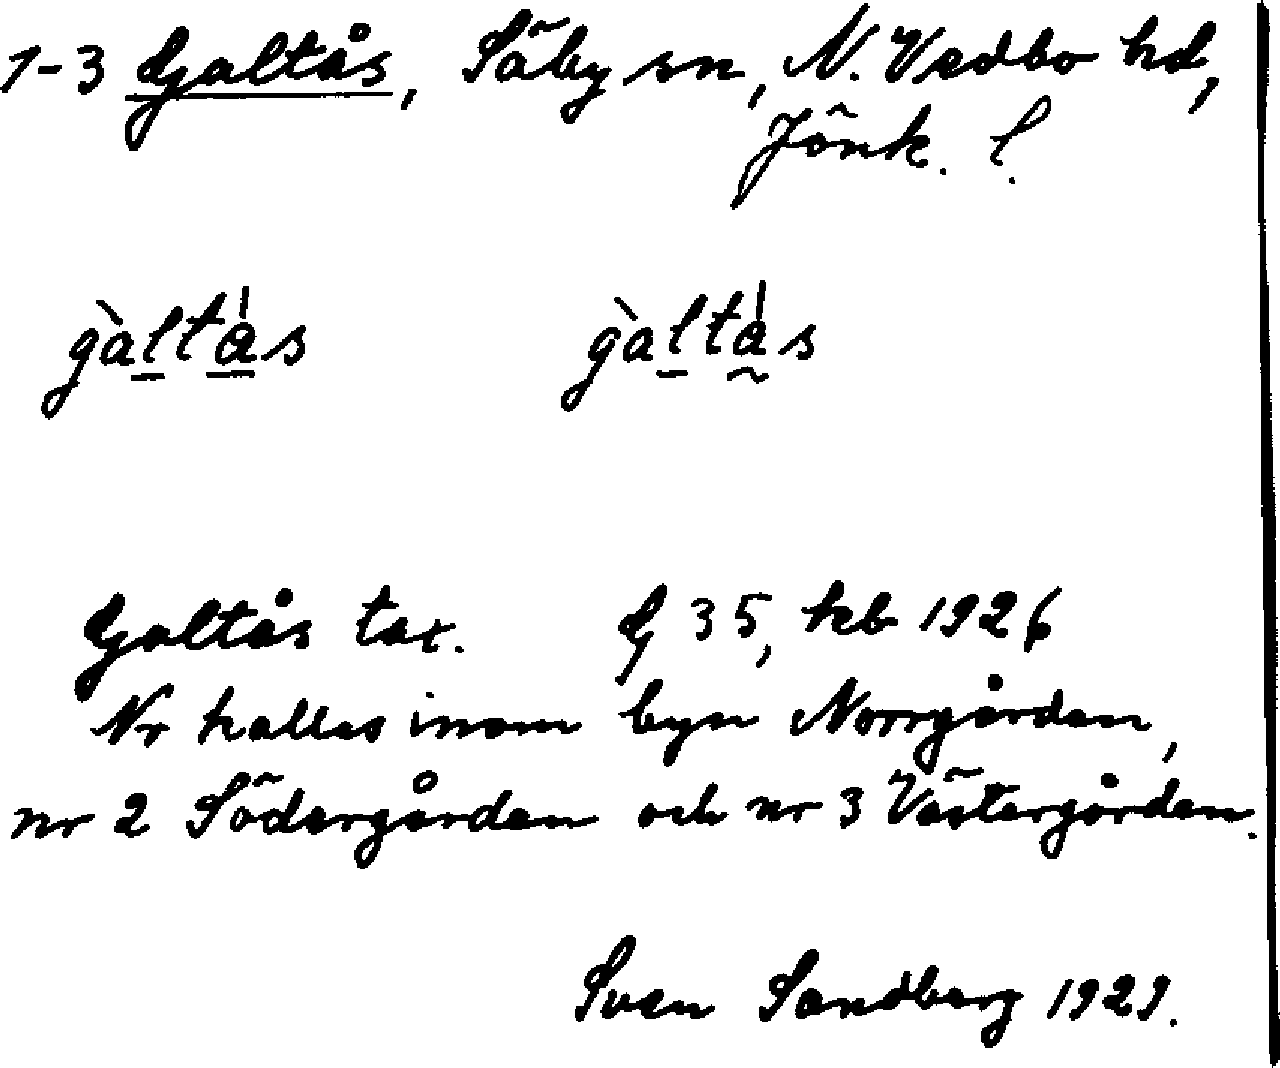 1-3 Galtås, Säby sn, N. Vedbo hd,
Jönk. l.
gàltás gàltás
Galtås tax. G 35, kb 1926
Nr kallas inom byn Norrgården,
nr 2 Södergården och nr 3 Västergården.
Sven Sandberg 1929.